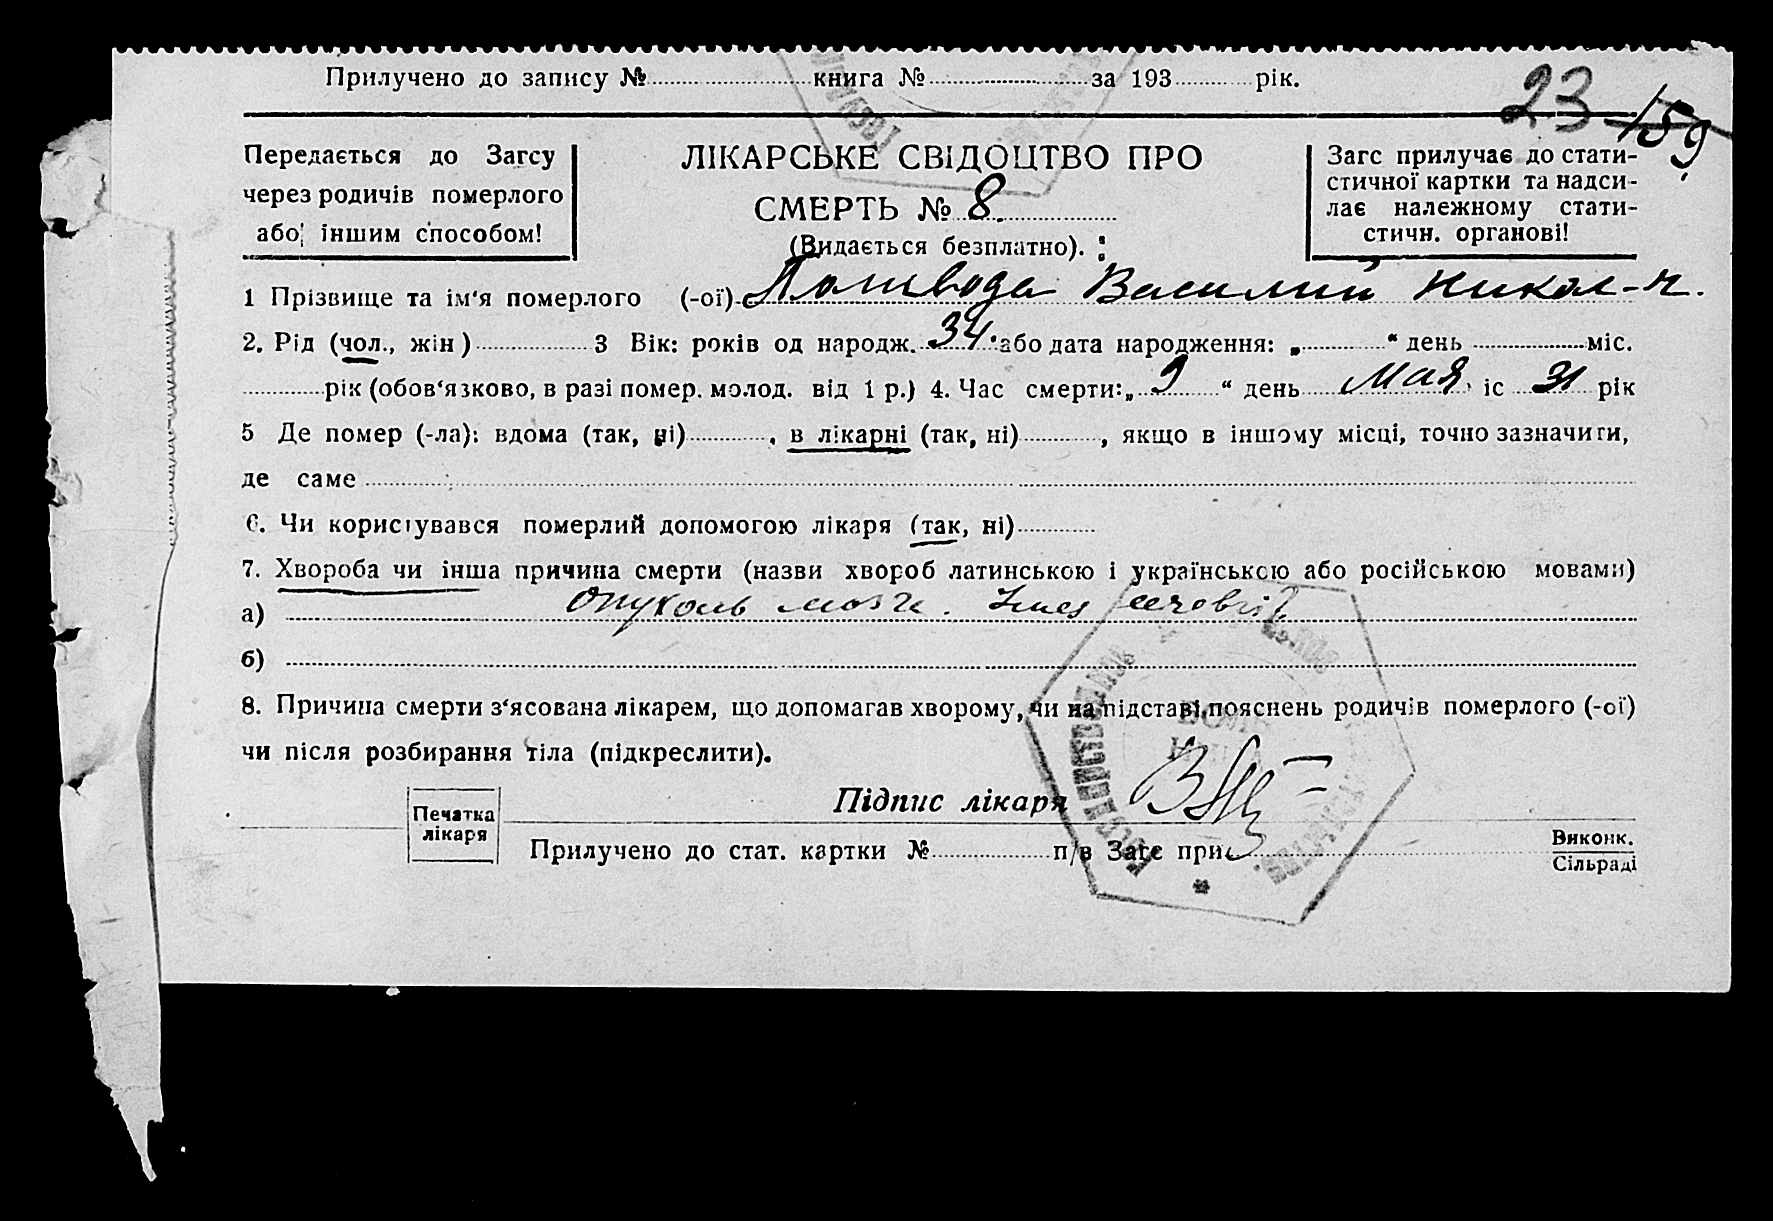 Прилучено до запису № книга № за 193 рік.
23
159
Передається до Загсу
через родичів померлого
або іншим способом!
ЛІКАРСЬКЕ СВІДОЦТВО ПРО
СМЕРТЬ № 8.
(Видається безплатно).
Загс прилучає до стати-
стичної картки та надси-
лає належному стати-
стичн. органові!
1 Прізвище та ім'я померлого (-ої) Василий Никол-ч.
2. Рід (чол., жін) 3 Вік: років од народж. 34 або дата народження: „ “ день міс.
рік (обов'язково, в разі помер. молод. від 1 р.) 4. Час смерти: „ 9 “ день Мая іс 31 рік
5 Де помер (-ла): вдома (так, ні) , в лікарні (так, ні) , якщо в іншому місці, точно зазначити,
де саме
6. Чи користувався померлий допомогою лікаря (так, ні)
7. Хвороба чи інша причина смерти (назви хвороб латинською і українською або російською мовами)
а) Опухоль мозга.
б)
8. Причина смерти з'ясована лікарем, що допомагав хворому, чи на підставі пояснень родичів померлого (-ої)
чи після розбирання тіла (підкреслити).
Підпис лікаря
Печатка
лікаря
Прилучено до стат. картки № п/в Загс при
Виконк.
Сільраді